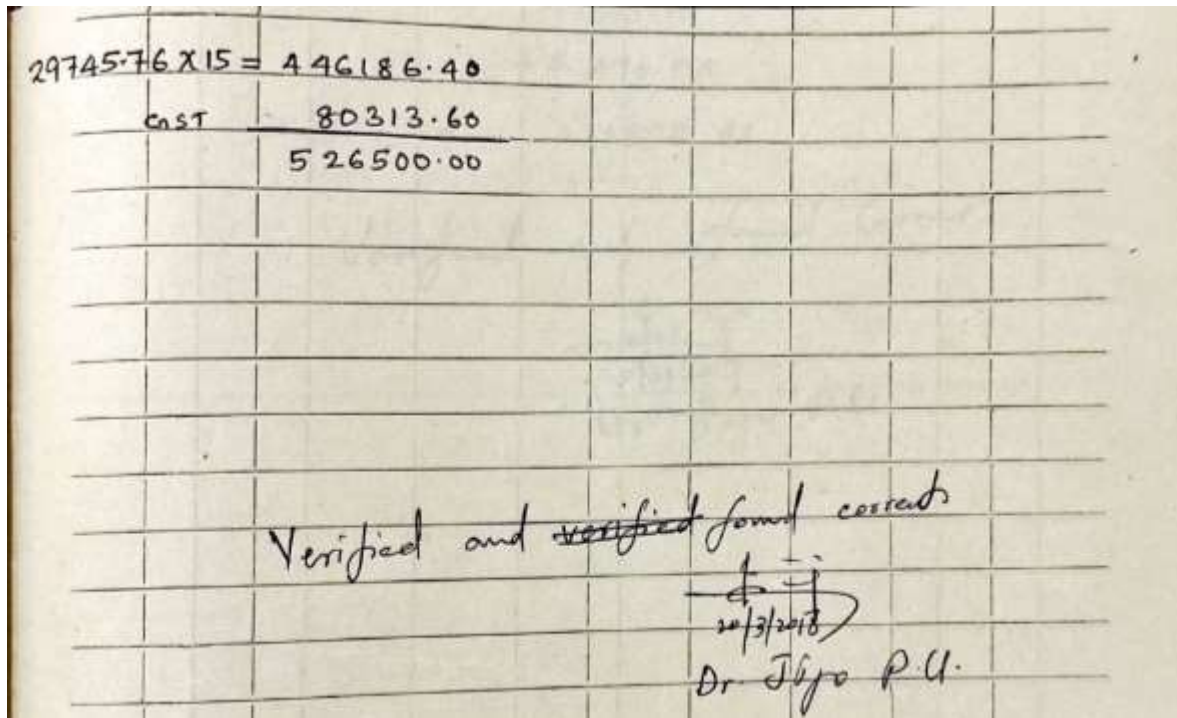 29745.76 X 15 = 446186.40
GST 80313.60
526500.00
Verified and verified found correct
20/3/2018
Dr. Jijo P.U.